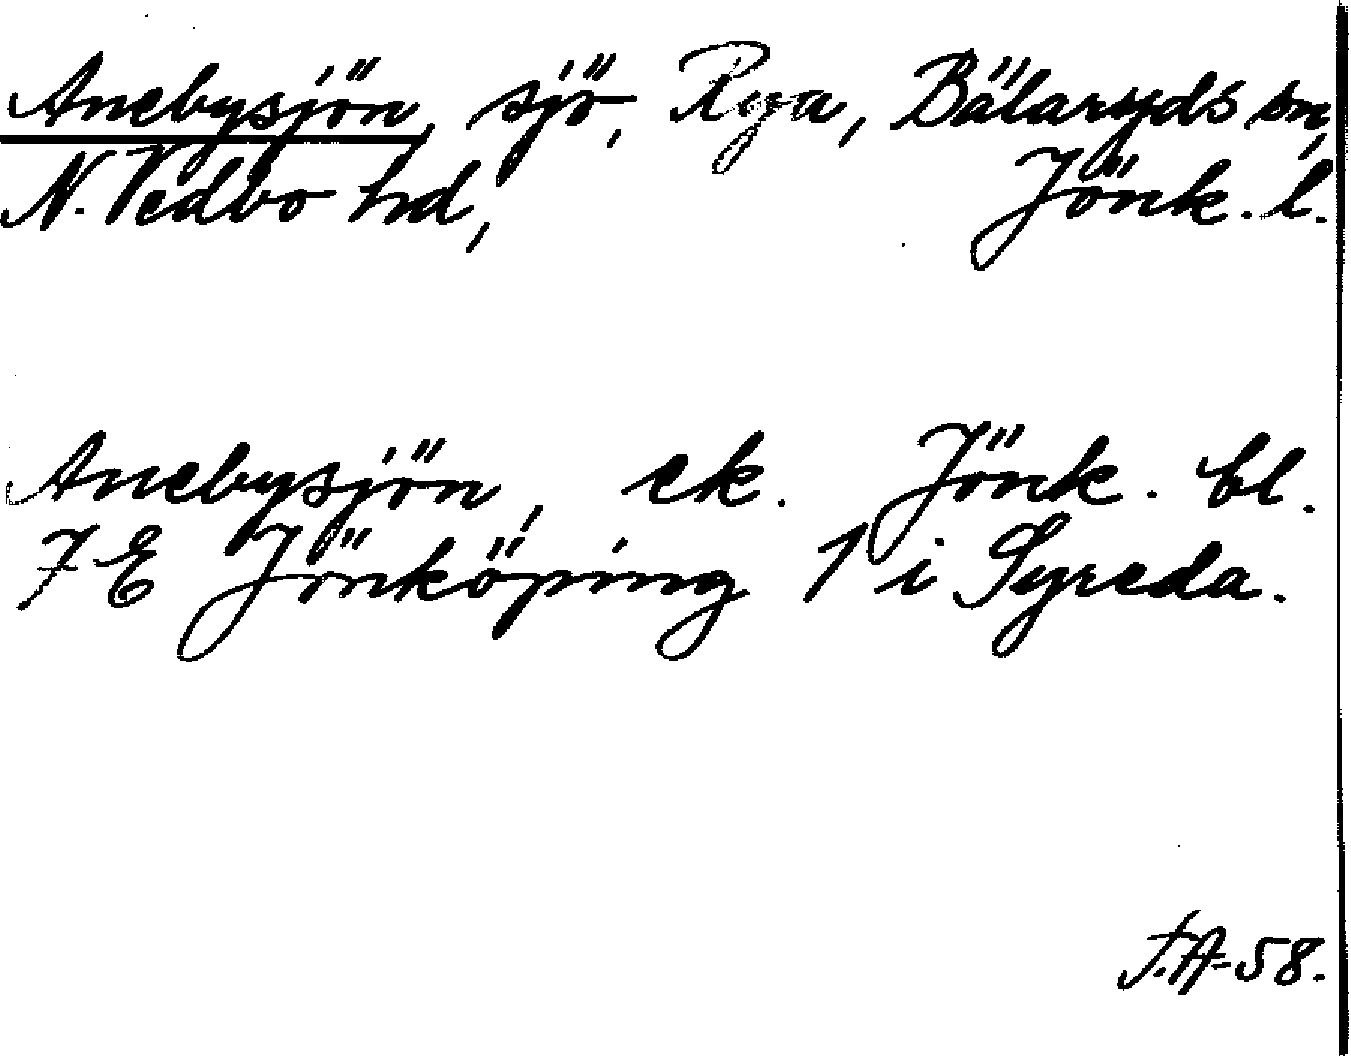 Anebysjön, sjö, Rya, Bälaryds sn,
N. Vedbo hd, Jönk. l.
Anebysjön, ek. Jönk. bl.
7 E Jönköping 1 i Syreda.
F.A-58.